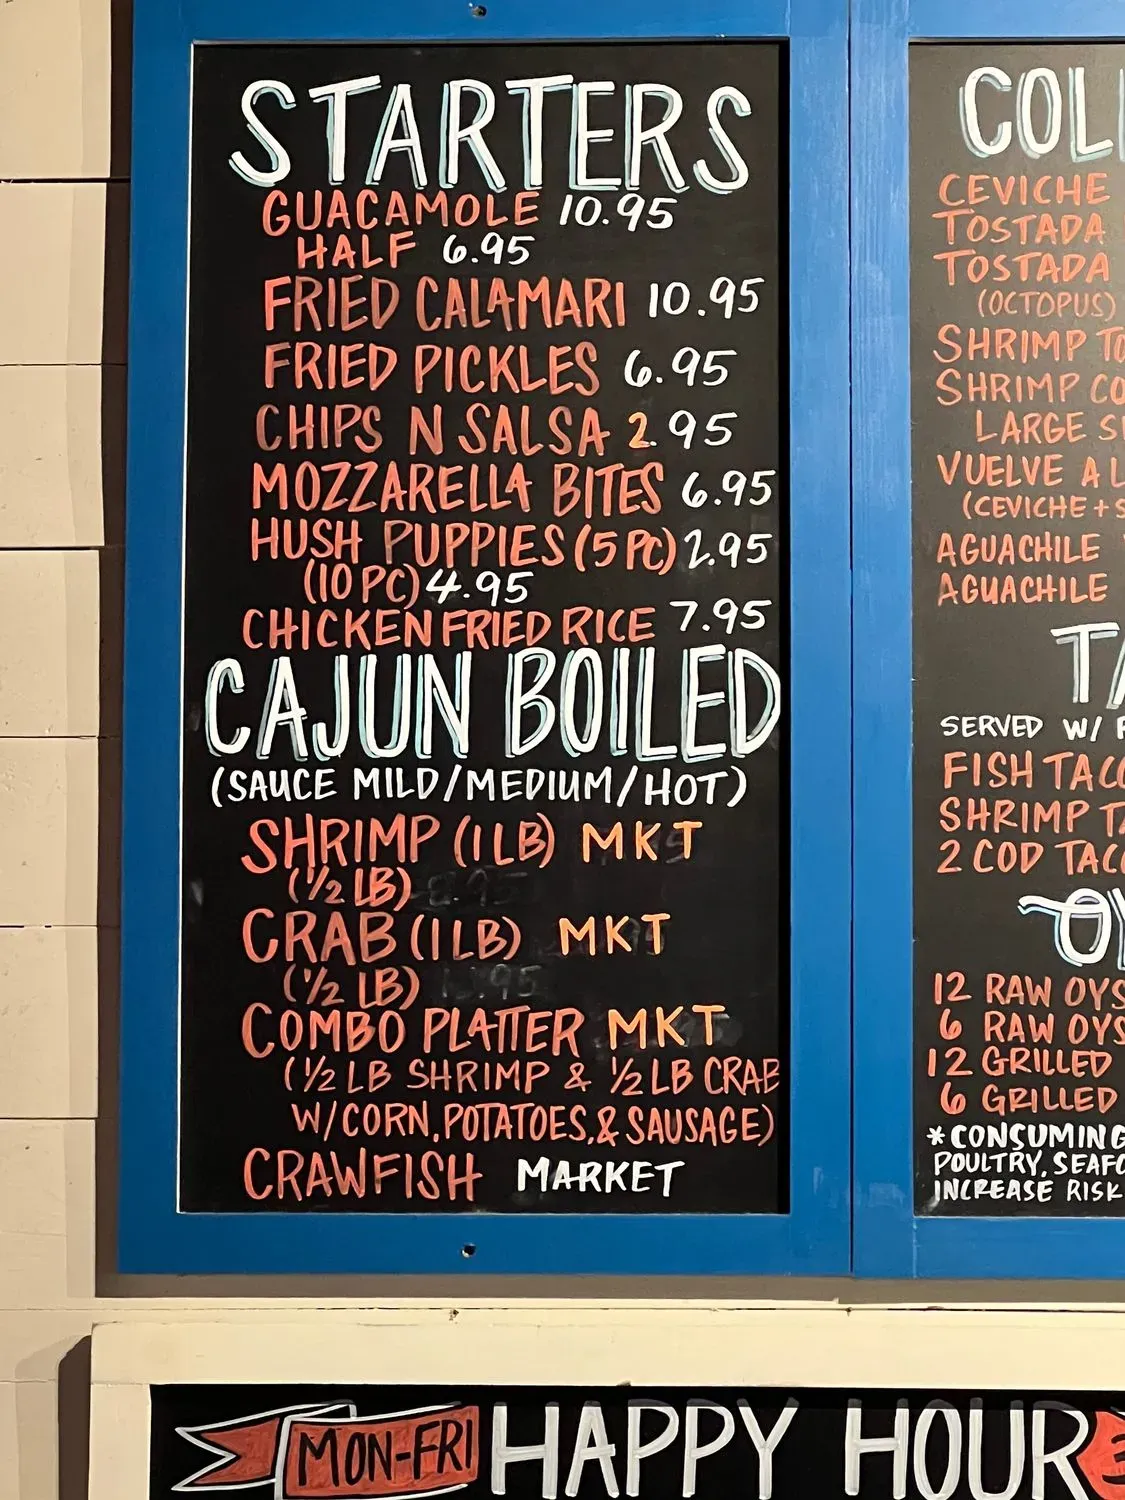 STARTERS
GUACAMOLE 10.95
HALF 6.95
FRIED CALAMARI 10.95
FRIED PICKLES 6.95
CHIPS N SALSA 2.95
MOZZARELLA BITES 6.95
HUSH PUPPIES (5 PC) 2.95
(10 PC) 4.95
CHICKEN FRIED RICE 7.95
CAJUN BOILED
(SAUCE MILD/MEDIUM/HOT)
SHRIMP (1 LB) MKT
(1/2 LB)
CRAB (1 LB) MKT
(1/2 LB)
COMBO PLATTER MKT
(1/2 LB SHRIMP & 1/2 LB CRAB
W/CORN, POTATOES, & SAUSAGE)
CRAWFISH MARKET
CEVICHE
TOSTADA
TOSTADA
(OCTOPUS)
SHRIMP
SHRIMP
LARGE
VUELVE A
(CEVICHE +
AGUACHILE
AGUACHILE
SERVED W/
FISH
SHRIMP
2 COD
12 RAW
6 RAW
12 GRILLED
6 GRILLED
*CONSUMING
POULTRY,
INCREASE RISK
MON-FRI HAPPY HOUR